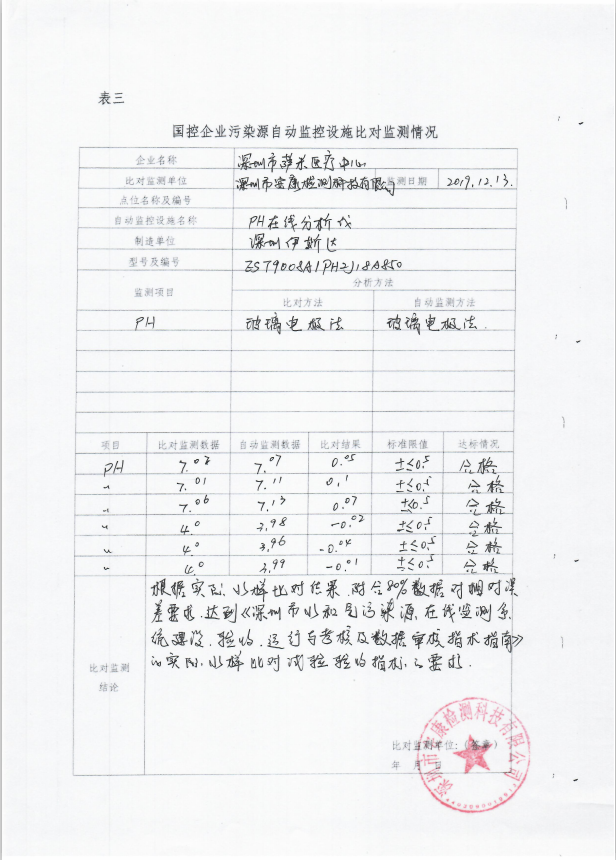 表三
国控企业污染源自动监控设施比对监测情况
企业名称 深圳市萨米医疗中心
比对监测单位 深圳市宝康检测科技有限公司 监测日期 2019.12.13.
点位名称及编号
自动监控设施名称 PH在线分析仪
制造单位 深圳伊斯达
型号及编号
监测项目 分析方法
比对方法 自动监测方法
PH 玻璃电极法 玻璃电极法.
项目 比对监测数据 自动监测数据 比对结果 标准限值 达标情况
PH 7.07 ±≤0.5 合格
〃 7.01 7.11 0.1 ±≤0.5 合格
〃 7.06 7.13 0.07 ±≤0.5 合格
〃 4.0 3.98 -0.02 ±≤0.5 合格
〃 4.0 3.96 -0.04 ±≤0.5 合格
〃 4.0 3.99 -0.01 ±≤0.5 合格
根据实际水样比对结果,符合80%数据对相对误
差要求.达到《深圳市水和气污染源在线监测系
统建设、验收、运行与考核及数据审核技术指南》
的实际水样比对试验验收指标之要求.
比对监测
结论
比对监测单位:(签章)
年 月 日